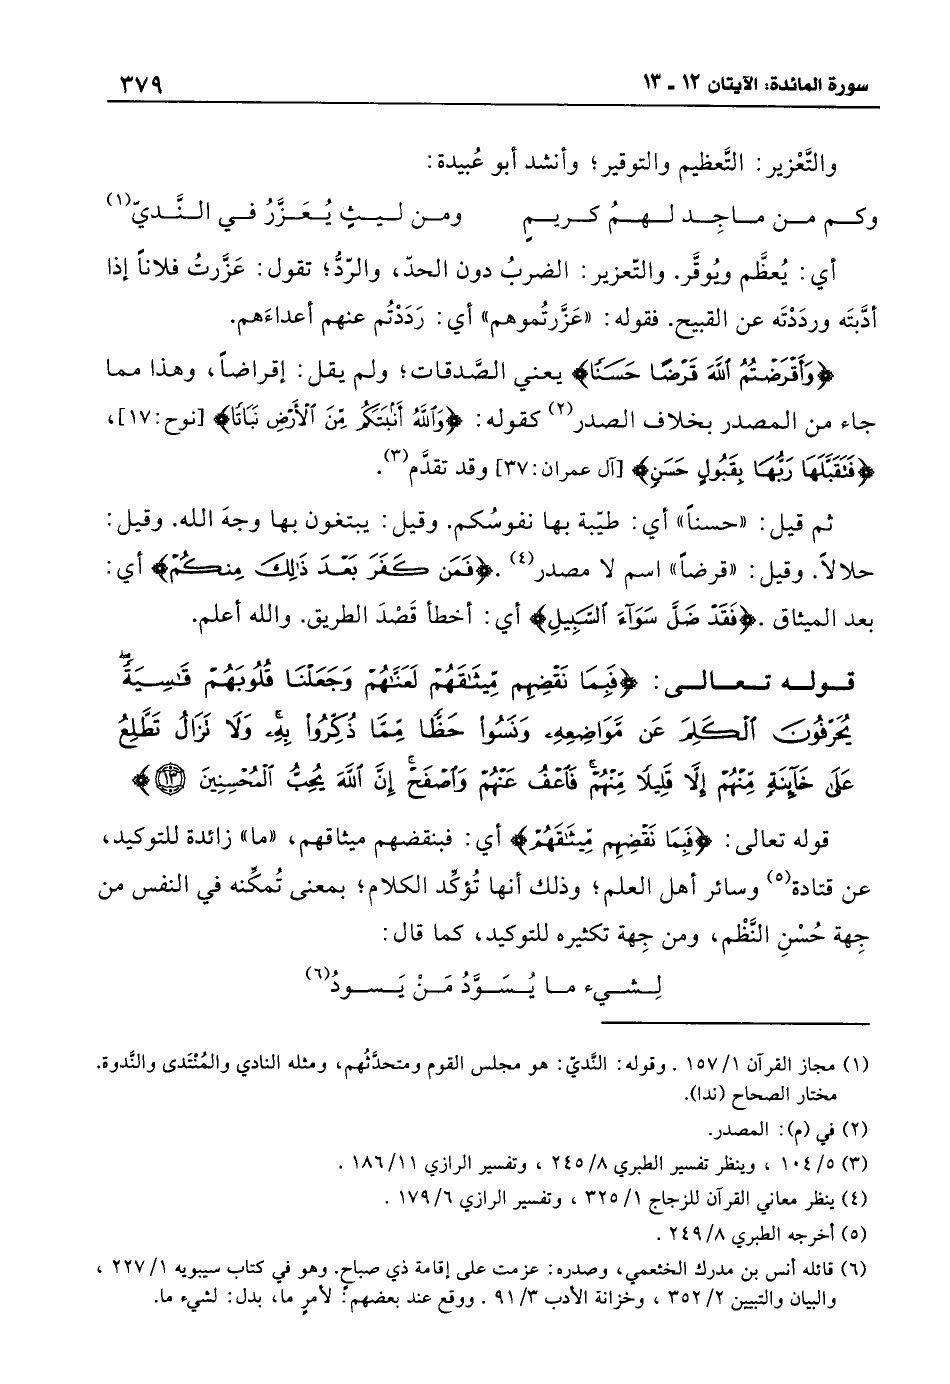 سورة المائدة: الآيتان ١٢ - ١٣
٣٧٩
والتَّعْزير: التَّعظيم والتوقير؛ وأنشد أبو عُبيدة:
وكـم مـن مـاجِـد لـهـمُ كـريـمٍ ومـن لـيـثٍ يُـعَـزَّرُ فـي الـنَّـديّ(١)
أي: يُعظَّم ويُوقَّر. والتّعزير: الضربُ دون الحدّ، والردُّ؛ تقول: عَزَّرتُ فلاناً إذا
أدَّبتَه وردَدْتَه عن القبيح. فقوله: «عَزَّرتُموهم» أي: رَدَدْتُم عنهم أعداءَهم.
﴿وَأَقْرَضْتُمُ ٱللَّهَ قَرْضًا حَسَنًا﴾ يعني الصَّدقات؛ ولم يقل: إقراضاً، وهذا مما
جاء من المصدر بخلاف الصدر(٢) كقوله: ﴿وَٱللَّهُ أَنۢبَتَكُم مِّنَ ٱلْأَرْضِ نَبَاتًا﴾ [نوح:١٧]،
﴿فَتَقَبَّلَهَا رَبُّهَا بِقَبُولٍ حَسَنٍ﴾ [آل عمران:٣٧] وقد تقدَّم(٣).
ثم قيل: «حسناً» أي: طيّبة بها نفوسُكم. وقيل: يبتغون بها وجهَ الله. وقيل:
حلالاً. وقيل: «قرضاً» اسم لا مصدر(٤). ﴿فَمَن كَفَرَ بَعْدَ ذَٰلِكَ مِنكُمْ﴾ أي:
بعد الميثاق. ﴿فَقَدْ ضَلَّ سَوَآءَ ٱلسَّبِيلِ﴾ أي: أخطأ قَصْدَ الطريق. والله أعلم.
قـولـه تـعـالـى: ﴿فَبِمَا نَقْضِهِم مِّيثَٰقَهُمْ لَعَنَّٰهُمْ وَجَعَلْنَا قُلُوبَهُمْ قَٰسِيَةً ۖ
يُحَرِّفُونَ ٱلْكَلِمَ عَن مَّوَاضِعِهِۦ وَنَسُوا۟ حَظًّا مِّمَّا ذُكِّرُوا۟ بِهِۦ ۚ وَلَا تَزَالُ تَطَّلِعُ
عَلَىٰ خَآئِنَةٍ مِّنْهُمْ إِلَّا قَلِيلًا مِّنْهُمْ ۖ فَٱعْفُ عَنْهُمْ وَٱصْفَحْ ۚ إِنَّ ٱللَّهَ يُحِبُّ ٱلْمُحْسِنِينَ ١٣﴾
قوله تعالى: ﴿فَبِمَا نَقْضِهِم مِّيثَٰقَهُمْ﴾ أي: فبنقضهم ميثاقهم، «ما» زائدة للتوكيد،
عن قتادة(٥) وسائر أهل العلم؛ وذلك أنها تُؤكِّد الكلام؛ بمعنى تُمكِّنه في النفس من
جِهة حُسْنِ النَّظْم، ومن جِهة تكثيره للتوكيد، كما قال:
لِـشـيء مـا يُـسَـوَّدُ مَـنْ يَـسـودُ(٦)
(١) مجاز القرآن ١/ ١٥٧. وقوله: النَّديّ: هو مجلس القوم ومتحدَّثُهم، ومثله النادي والمُنْتَدى والنَّدوة.
مختار الصحاح (ندا).
(٢) في (م): المصدر.
(٣) ٥/ ١٠٤، وينظر تفسير الطبري ٨/ ٢٤٥، وتفسير الرازي ١١/ ١٨٦.
(٤) ينظر معاني القرآن للزجاج ١/ ٣٢٥، وتفسير الرازي ٦/ ١٧٩.
(٥) أخرجه الطبري ٨/ ٢٤٩.
(٦) قائله أنس بن مدرك الخثعمي، وصدره: عزمت على إقامة ذي صباحٍ. وهو في كتاب سيبويه ١/ ٢٢٧،
والبيان والتبيين ٢/ ٣٥٢، وخزانة الأدب ٣/ ٩١. ووقع عند بعضهم: لأمرٍ ما، بدل: لشيء ما.